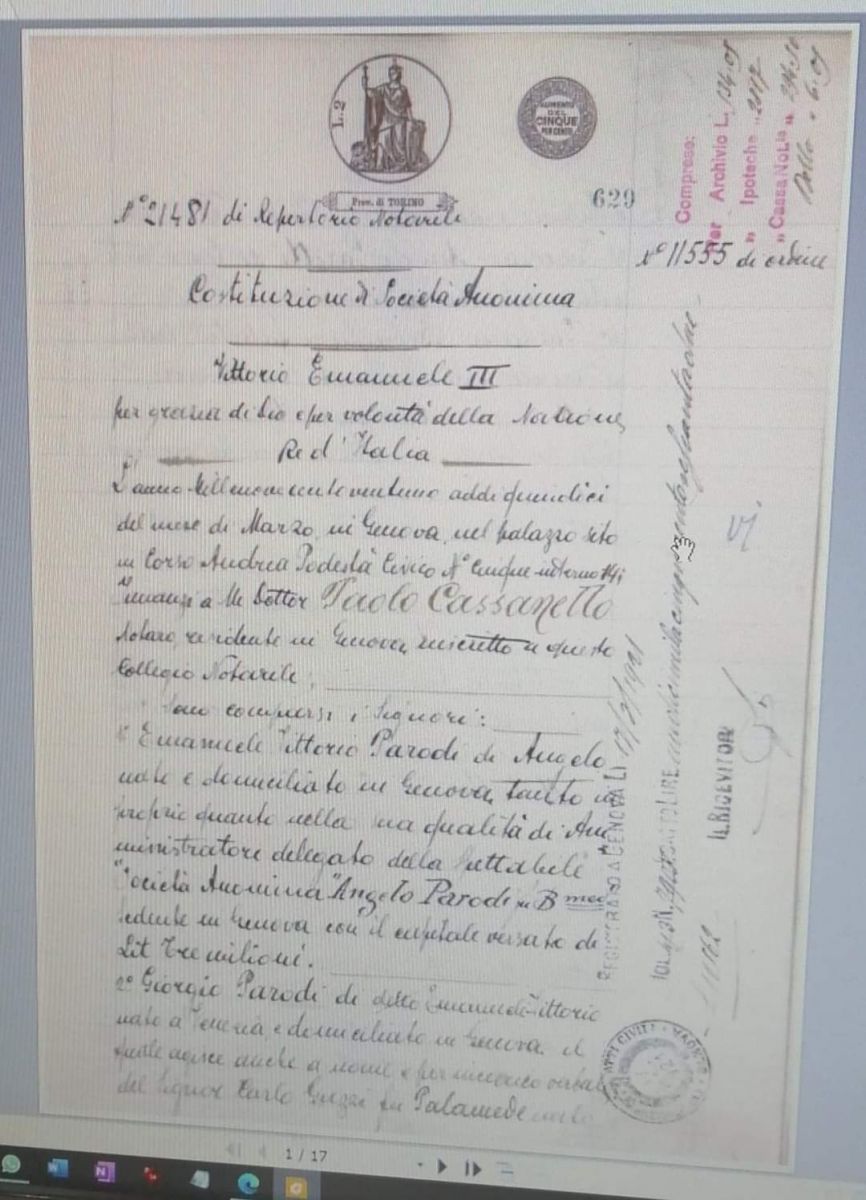 L. 2
AUMENTO
DEL
CINQUE
PER CENTO
Prov. di TORINO
629
Compreso:
Per Archivio L.
" Ipoteche "
" Cassa Not.
Nº 21481 di Repertorio Notarile
Nº 11555 di ordine
Costituzione di Società Anonima
Vittorio Emanuele III
per grazia di Dio e per volontà della Nazione
Re d'Italia
L'anno Millenovecentoventuno addì quindici
del mese di Marzo, in Genova, nel palazzo sito
in Corso Andrea Podestà Civico Nº Cinque interno 14;
Innanzi a Me Dottor Paolo Cassanello
Notaro, residente in Genova, inscritto a questo
Collegio Notarile;
Sono comparsi i Signori:
1º Emanuele Vittorio Parodi di Angelo
nato e domiciliato in Genova, tanto in
proprio quanto nella sua qualità di Am
ministratore delegato della Spettabile
"Società Anonima "Angelo Parodi fu Bmeo
sedente in Genova con il capitale versato di
Lit Tre milioni.
2º Giorgio Parodi di detto Emanuele Vittorio
nato a Venezia, e domiciliato in Genova, il
quale agisce anche a nome e per incarico verbale
del Signor Carlo Guzzi fu Palamede nato
REGISTRATO A GENOVA LI 17/3/1921
IL RICEVITORE
ATTI CIVILI
1 / 17